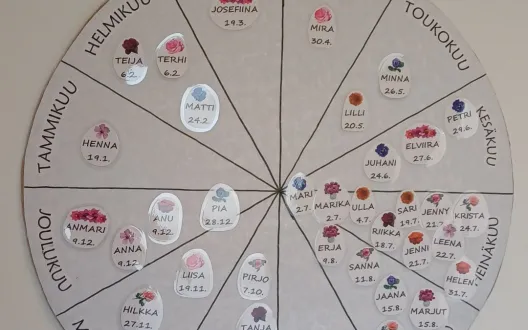 HELMIKUU
TOUKOKUU
KESÄKUU
TAMMIKUU
JOULUKUU
HEINÄKUU
JOSEFIINA
19.3.
MIRA
30.4.
TEIJA
6.2.
TERHI
6.2.
MATTI
24.2.
HENNA
19.1.
MINNA
26.5.
LILLI
20.5.
PETRI
29.6.
ELVIIRA
27.6.
JUHANI
24.6.
MARI
2.7.
MARIKA
2.7.
ULLA
4.7.
SARI
19.7.
JENNY
KRISTA
24.7.
RIIKKA
18.7.
JENNI
21.7.
LEENA
22.7.
HELEN
31.7.
ERJA
9.8.
SANNA
11.8.
JAANA
15.8.
MARJUT
15.8.
ANMARI
9.12.
ANU
9.12
ANNA
9.12.
PIA
28.12.
LIISA
19.11.
HILKKA
27.11.
PIRJO
7.10.
TANJA